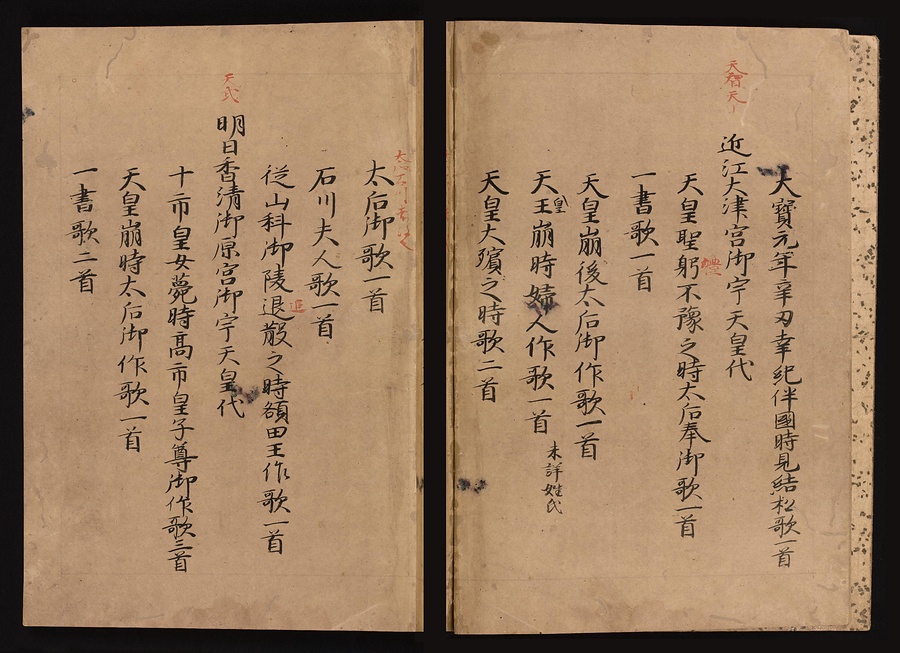 天智天
大寳元年辛丑幸紀伊國時見結松歌一首
近江大津宮御宇天皇代
天皇聖躬不豫之時太后奉御歌一首
一書歌一首
天皇崩後太后御作歌一首
天王崩時婦人作歌一首 未詳姓氏
皇
天皇大殯之時歌二首
太后御歌一首
石川夫人歌一首
従山科御陵退散之時額田王作歌一首
退
天武
明日香清御原宮御宇天皇代
十市皇女薨時高市皇子尊御作歌三首
天皇崩時太后御作歌一首
一書歌二首